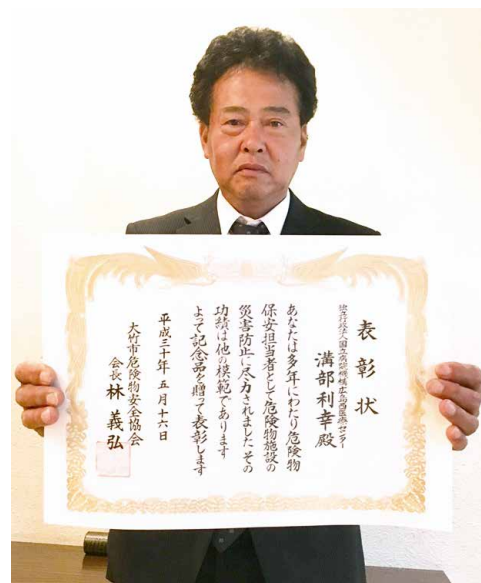 表彰状
独立行政法人国立病院機構広島西医療センター
溝部利幸殿
あなたは多年にわたり危険物
保安担当者として危険物施設の
災害防止に尽力されましたその
功績は他の模範であります
よって記念品を贈って表彰します
平成三十年五月十六日
大竹市危険物安全協会
会長 林義弘